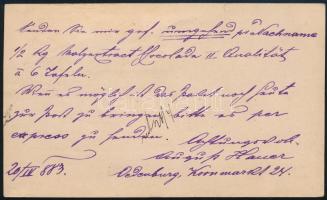 Senden Sie mir gef. umgehend pr Nachnahme
1/2 Kg Malzextract Chocolade II. Qualität
à 6 Tafeln.
Wenn es möglich ist das Paket noch heute
zur Post zu bringen bitte es per
express zu senden.
Achtungsvoll
August Hauer
20/IV 883. Oedenburg, Kornmarkt 24.